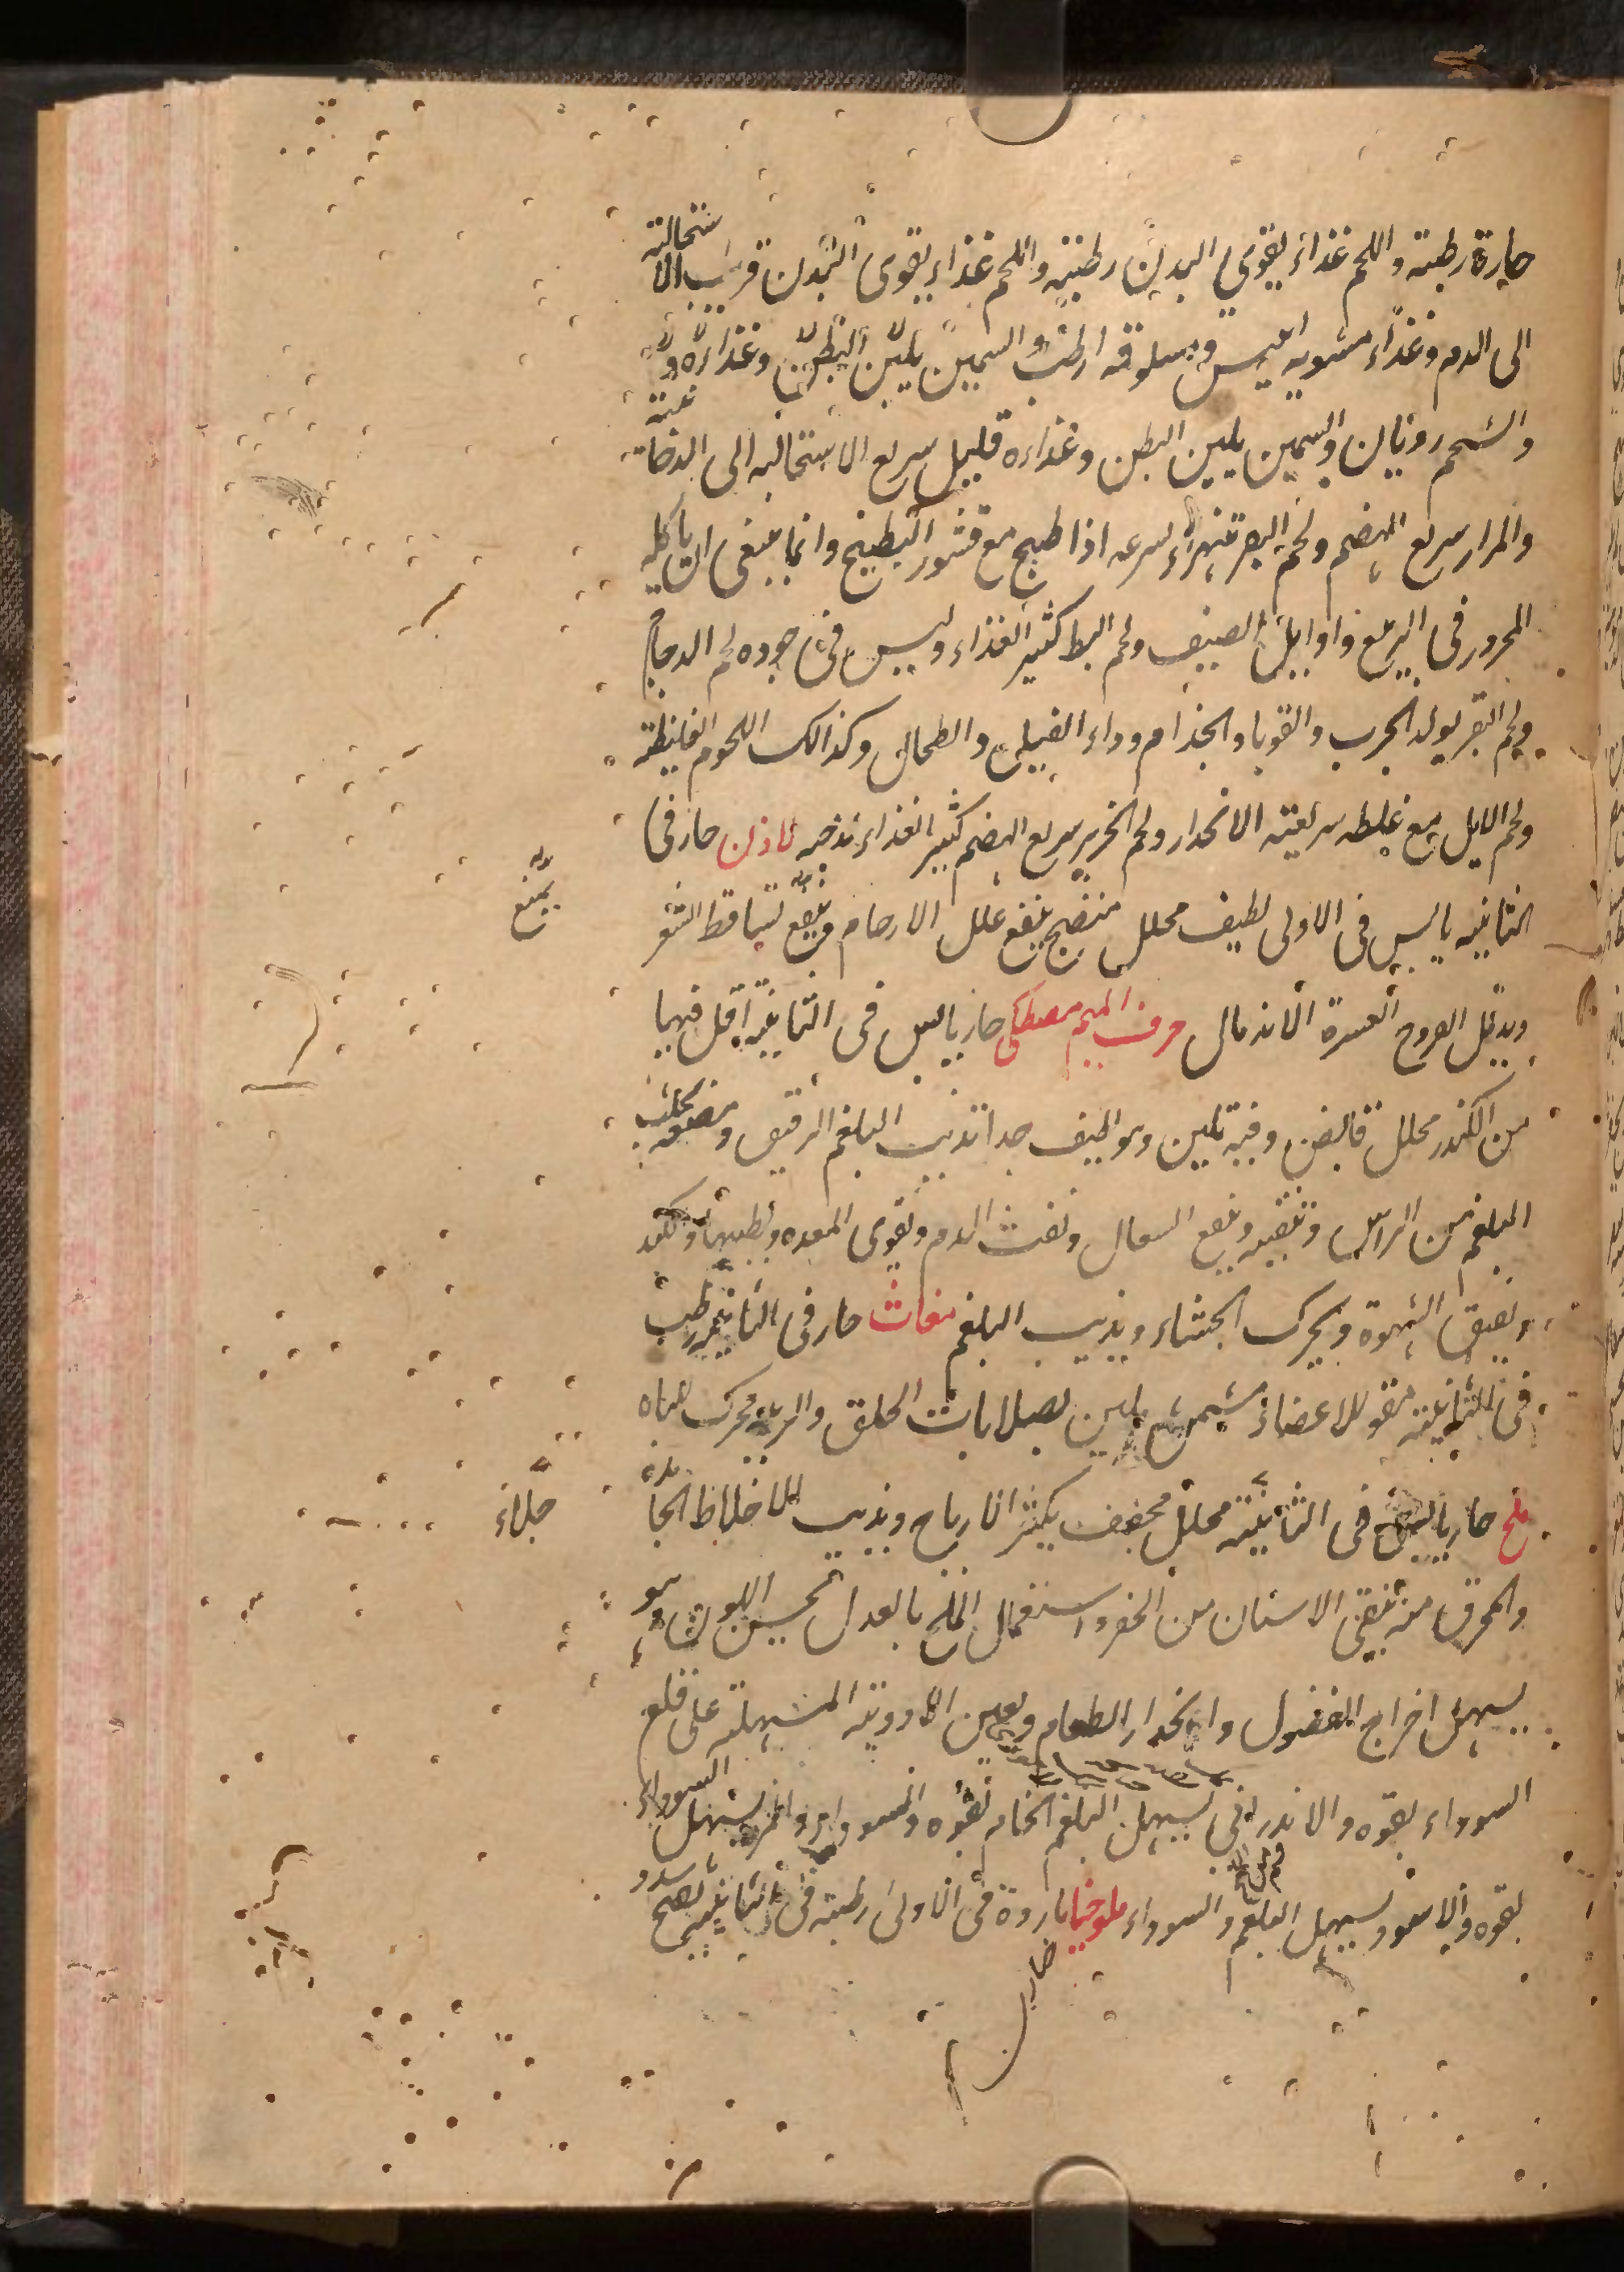 حارة رطبة واللحم غذاء يقوى البدن رطبة واللحم غذاء يقوى البدن قريب الاستحالته
الى الدم وغذاء مشويه ايبس ومسلوقه ارطب والسمين يلين البطن وغذاءه
والشحم رديان والسمين يلين البطن وغذاءه قليل سريع الاستحالة الى الدخانية
والمرار سريع الهضم ولحم البقر تتهراء لسرعه اذا طبخ مع قشور البطيخ وانما ينبغى ان ياكله
المحرور فى الربيع واوايل الصيف ولحم البط كثير الغذاء وليس فى جوده لحم الدجاج
ولحم البقر يولد الجرب والقوبا والجذام وداء الفيل والطحال وكذالك اللحوم الغليظة
ولحم الايل مع غلظه سريعة الانحدار ولحم الخنزير سريع الهضم كثير الغذاء لزجه لاذن حار فى
الثانيه يابس فى الاولى لطيف محلل منضج ينفع علل الارحام وينفع تساقط الشعر
يمنع
ويدمل القروح العسرة الاندمال حرف الميم مصطكى حار يابس فى الثانية اقل فيهما
من الكندر محلل قابض وفيه تليين وهو لطيف جدا تذيب البلغم الرقيق ومضغه يجلب
البلغم من الراس وتنقيه وينفع السعال ونفث الدم ويقوى المعده ويطيبها والكبد
ويفتق الشهوة ويحرك الجشاء ويذيب البلغم مغاث حار فى الثانية رطب
فى الثانية مقو للاعضاء مسمن يلين لصلابات الحلق والرية محرك للباه
ملح حار يابس فى الثانية محلل مجفف يكثر الارياح ويذيب الاخلاط الجامدة
جلاء
والمحرق منه ينقى الاسنان من الحفر واستعمال الملح بالعدل تحسين اللون وهو
يسهل اخراج الفضول وانحدار الطعام ويعين الادوية المسهلة على قلع
السوداء بقوه والاندرانى يسهل البلغم الخام بقوه والاسود والمر يسهل السوداء
بقوه والاسود يسهل البلغم والسوداء ملوخيا باردة فى الاولى رطبة فى الثانية يفتح سدد